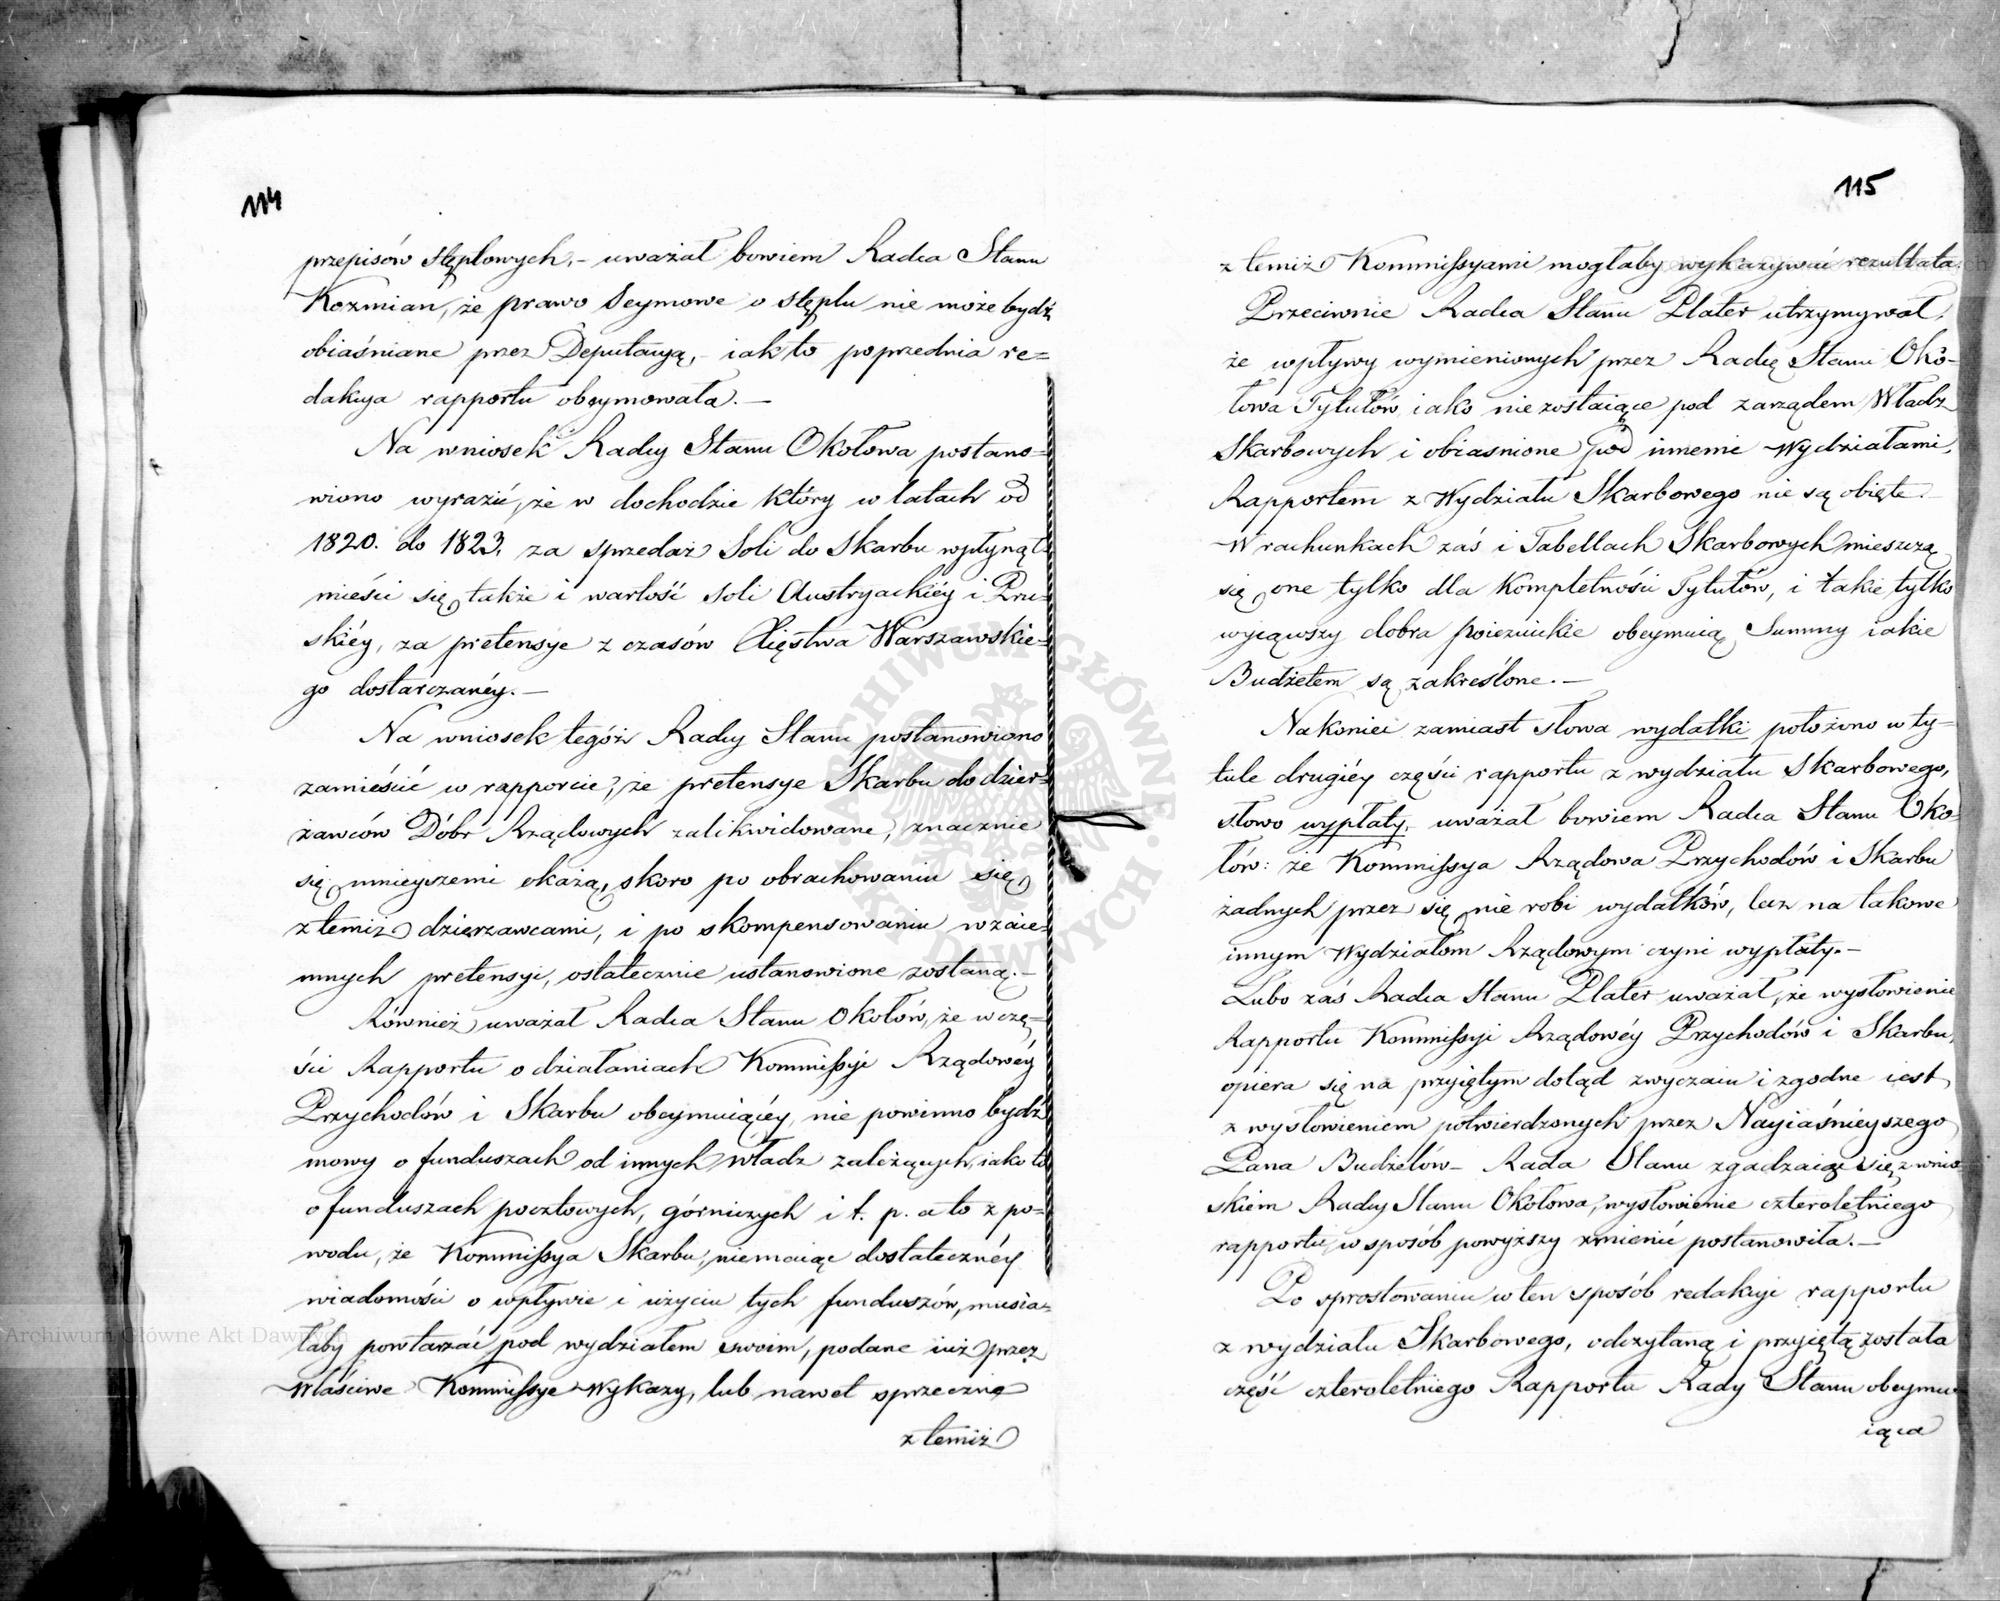 114
przepisów stęplowych, – uważał bowiem Radca Stanu
Kozmian, że prawo Seymowe o stęplu nie może bydź
obiaśniane przez Deputacyą, – iak to poprzednia re=
dakcya rapportu obeymowała. –
Na wniosek Radcy Stanu Okołowa postano=
wiono wyrazić, że w dochodzie który w latach od
1820. do 1823. za sprzedaż Soli do Skarbu wpłynął
mieści się także i wartość soli Austryackiéy i Pru=
skiéy, za pretensye z czasów Xięstwa Warszawskie=
go dostarczanéy. –
Na wniosek tegóż Radcy Stanu postanowiono
zamieścić w rapporcie, że pretensye Skarbu do dzier=
żawców Dóbr Rządowych zalikwidowane, znacznie
się mnieyszemi okażą, skoro po obrachowaniu się
z temiż dzierzawcami, i po skompensowaniu wzaie=
mnych pretensyi, ostatecznie ustanowione zostaną. –
Również uważał Radca Stanu Okołów, że w czę=
ści Rapportu o działaniach Kommissyi Rządowéy
Przychodów i Skarbu obeymuiącéy, nie powinno bydź
mowy o funduszach od innych władz zależących, iako to
o funduszach pocztowych, górniczych i t. p. a to z po=
wodu, że Kommissya Skarbu, niemaiąc dostatecznéy
wiadomości o wpływie i użyciu tych funduszów, musia=
łaby powtarzać pod wydziałem swoim, podane iuż przez
właściwe Kommissye Wykazy, lub nawet sprzeczne
z temiż
115
z temiż Kommissyami mogłaby wykazywać rezultata.
Przeciwnie Radca Stanu Plater utrzymywał,
że wpływy wymienionych przez Radcę Stanu Oko=
łowa Tytułów, iako nie zostaiące pod zarządem Władz
Skarbowych i obiasnione pod innemi Wydziałami,
Rapportem z Wydziału Skarbowego nie są obięte. –
W rachunkach zaś i Tabellach Skarbowych mieszczą
się one tylko dla kompletności Tytułów, i takie tylko
wyiąwszy dobra poiezuickie obeymuią Summy iakie
Budżetem są zakreślone. –
Nakoniec zamiast słowa wydatki położono w ty=
tule drugiéy części rapportu z wydziału Skarbowego,
słowo wypłaty, uważał bowiem Radca Stanu Oko=
łów: że Kommissya Rządowa Przychodów i Skarbu
żadnych przez się nie robi wydatków, lecz na takowe
innym Wydziałom Rządowym czyni wypłaty. –
Lubo zaś Radca Stanu Plater uważał, że wysłowienie
Rapportu Kommissyi Rządowéy Przychodów i Skarbu,
opiera się na przyiętym dotąd zwyczaiu i zgodne iest
z wysłowieniem potwierdzonych przez Nayiaśnieyszego
Pana Budżetów – Rada Stanu zgadzaiąc się z wnio=
skiem Radcy Stanu Okołowa, wysłowienie czteroletniego
rapportu, w sposób powyższy zmienić postanowiła. –
Po sprostowaniu w ten sposób redakcyi rapportu
z wydziału Skarbowego, odczytaną i przyiętą została
część czteroletniego Rapportu Rady Stanu obeymu=
iąca
ARCHIWUM GŁÓWNE AKT DAWNYCH
Archiwum Główne Akt Dawnych